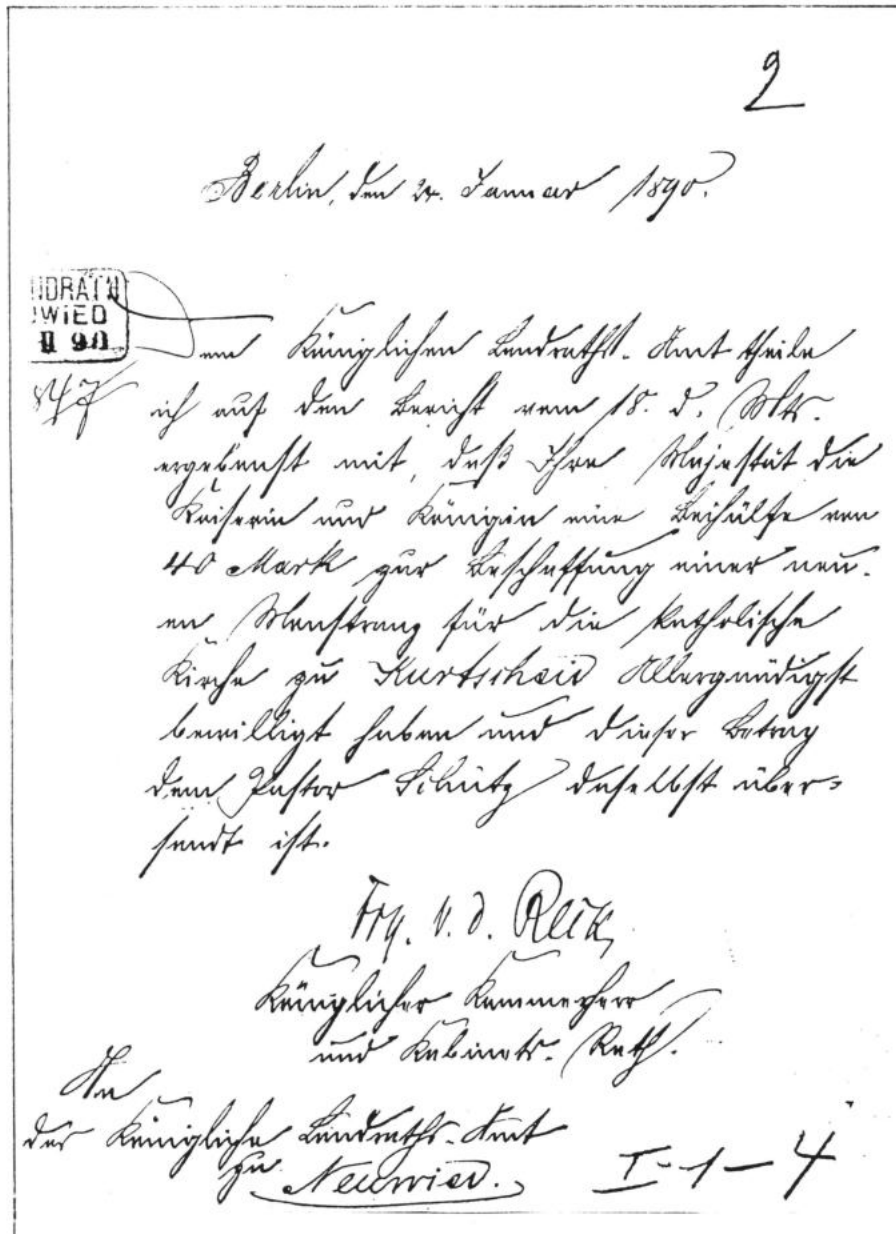 2
Berlin, den 24. Januar 1890.
NDRATH
WIED
II 90
847
Dem Königlichen Landraths-Amt theile
ich auf den Bericht vom 18. d. Mts.
ergebenst mit, daß Ihre Majestät die
Kaiserin und Königin eine Beihülfe von
40 Mark zur Beschaffung einer neu-
en Monstranz für die katholische
Kirche zu Kurtscheid Allergnädigst
bewilligt haben und dieser Betrag
dem Pastor Schütz daselbst über-
sandt ist.
Frh. v. d. Reck,
Königlicher Kammerherr
und Kabinets-Rath.
An
das Königliche Landraths-Amt
zu Neuwied.
I-1-4